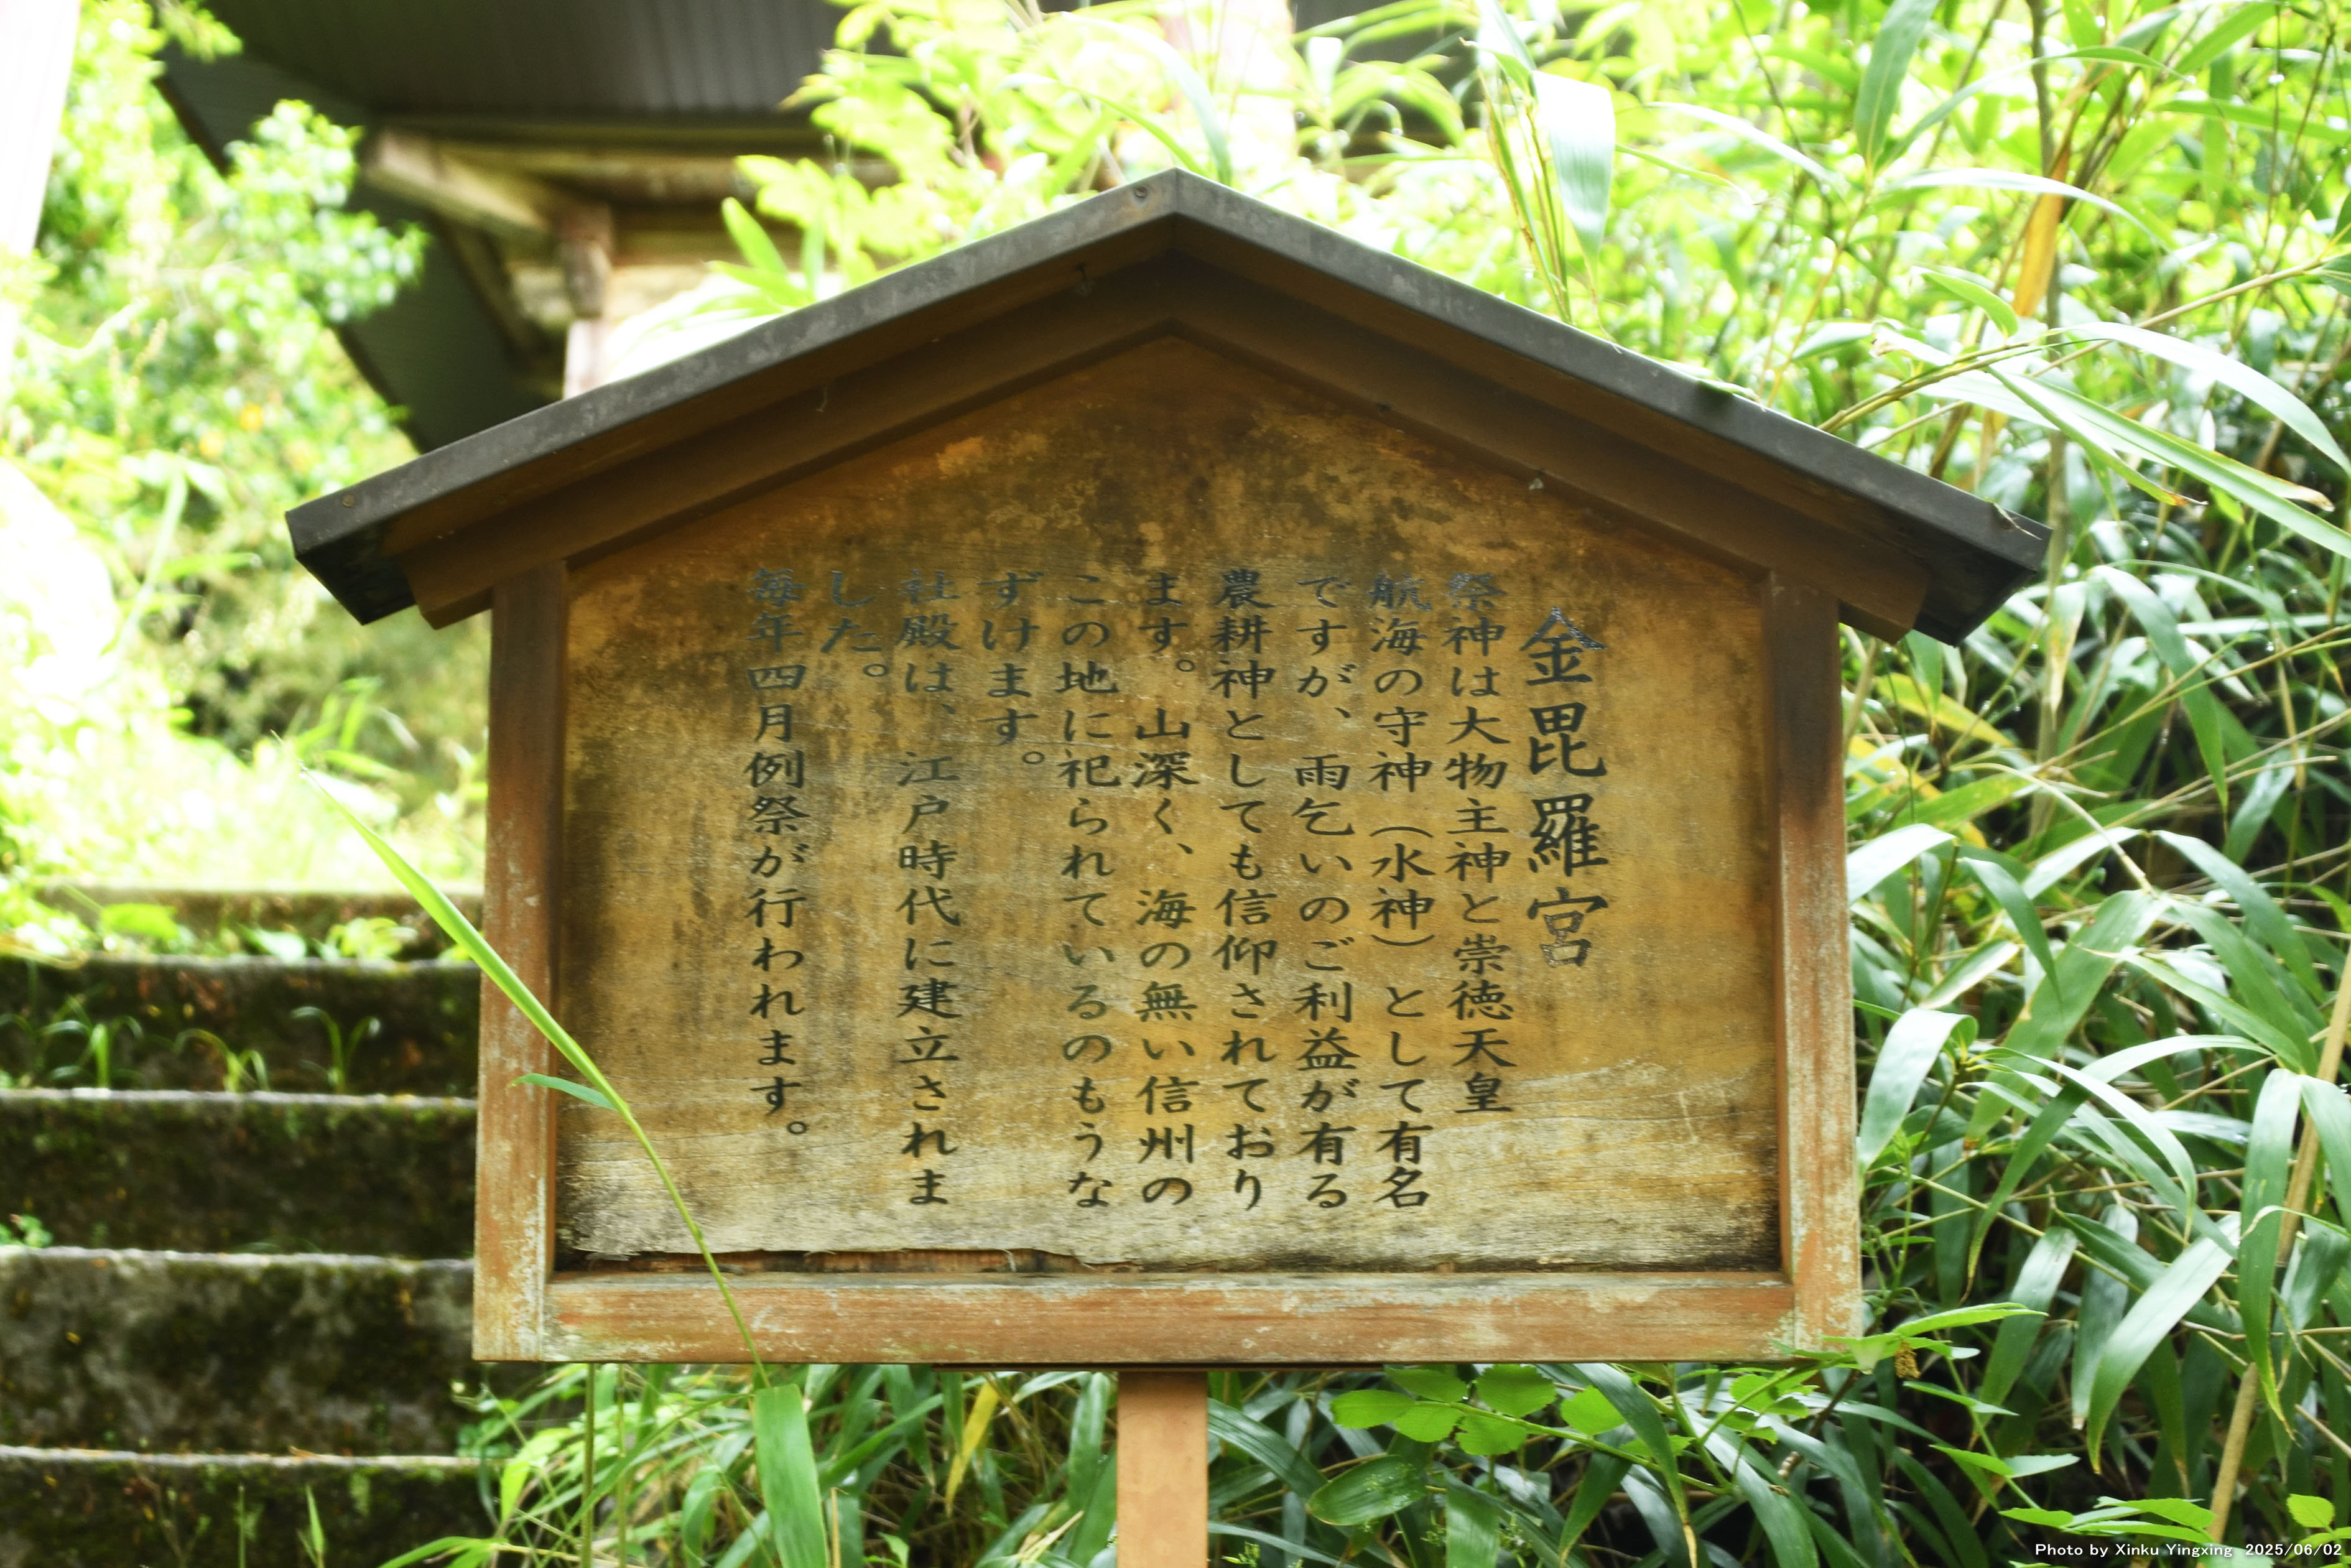 金毘羅宮
祭神は大物主神と崇徳天皇
航海の守神（水神）として有名
ですが、雨乞いのご利益が有る
農耕神としても信仰されており
ます。山深く、海の無い信州の
この地に祀られているのもうな
ずけます。
社殿は、江戸時代に建立されま
した。
毎年四月例祭が行われます。
Photo by Xinku Yingxing 2025/06/02